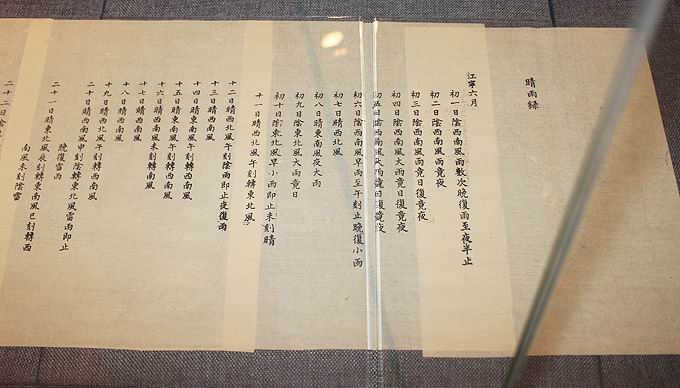 晴雨錄
江寧六月
初一日陰西南風雨數次晚復雨至夜半止
初二日陰西南風雨竟夜
初三日陰西南風雨竟日復竟夜
初四日陰西南風大雨竟日復竟夜
初五日陰西南風大雨竟日復竟夜
初六日陰西南風早雨至午刻止晚復小雨
初七日晴西北風
初八日晴東南風夜大雨
初九日陰東北風大雨竟日
初十日陰東北風早小雨即止未刻晴
十一日晴西北風午刻轉東北風
十二日晴西北風午刻陰雨即止夜復雨
十三日晴西南風
十四日晴東南風午刻轉西南風
十五日晴東南風午刻轉西南風
十六日晴西南風未刻轉南風
十七日晴西南風
十八日晴西南風
十九日晴西北風午刻轉西南風
二十日晴西南風申刻陰轉東北風雷雨即止
晚復雷雨
二十一日晴東北風辰刻轉東南風巳刻轉西
南風未刻陰雷
二十二日陰